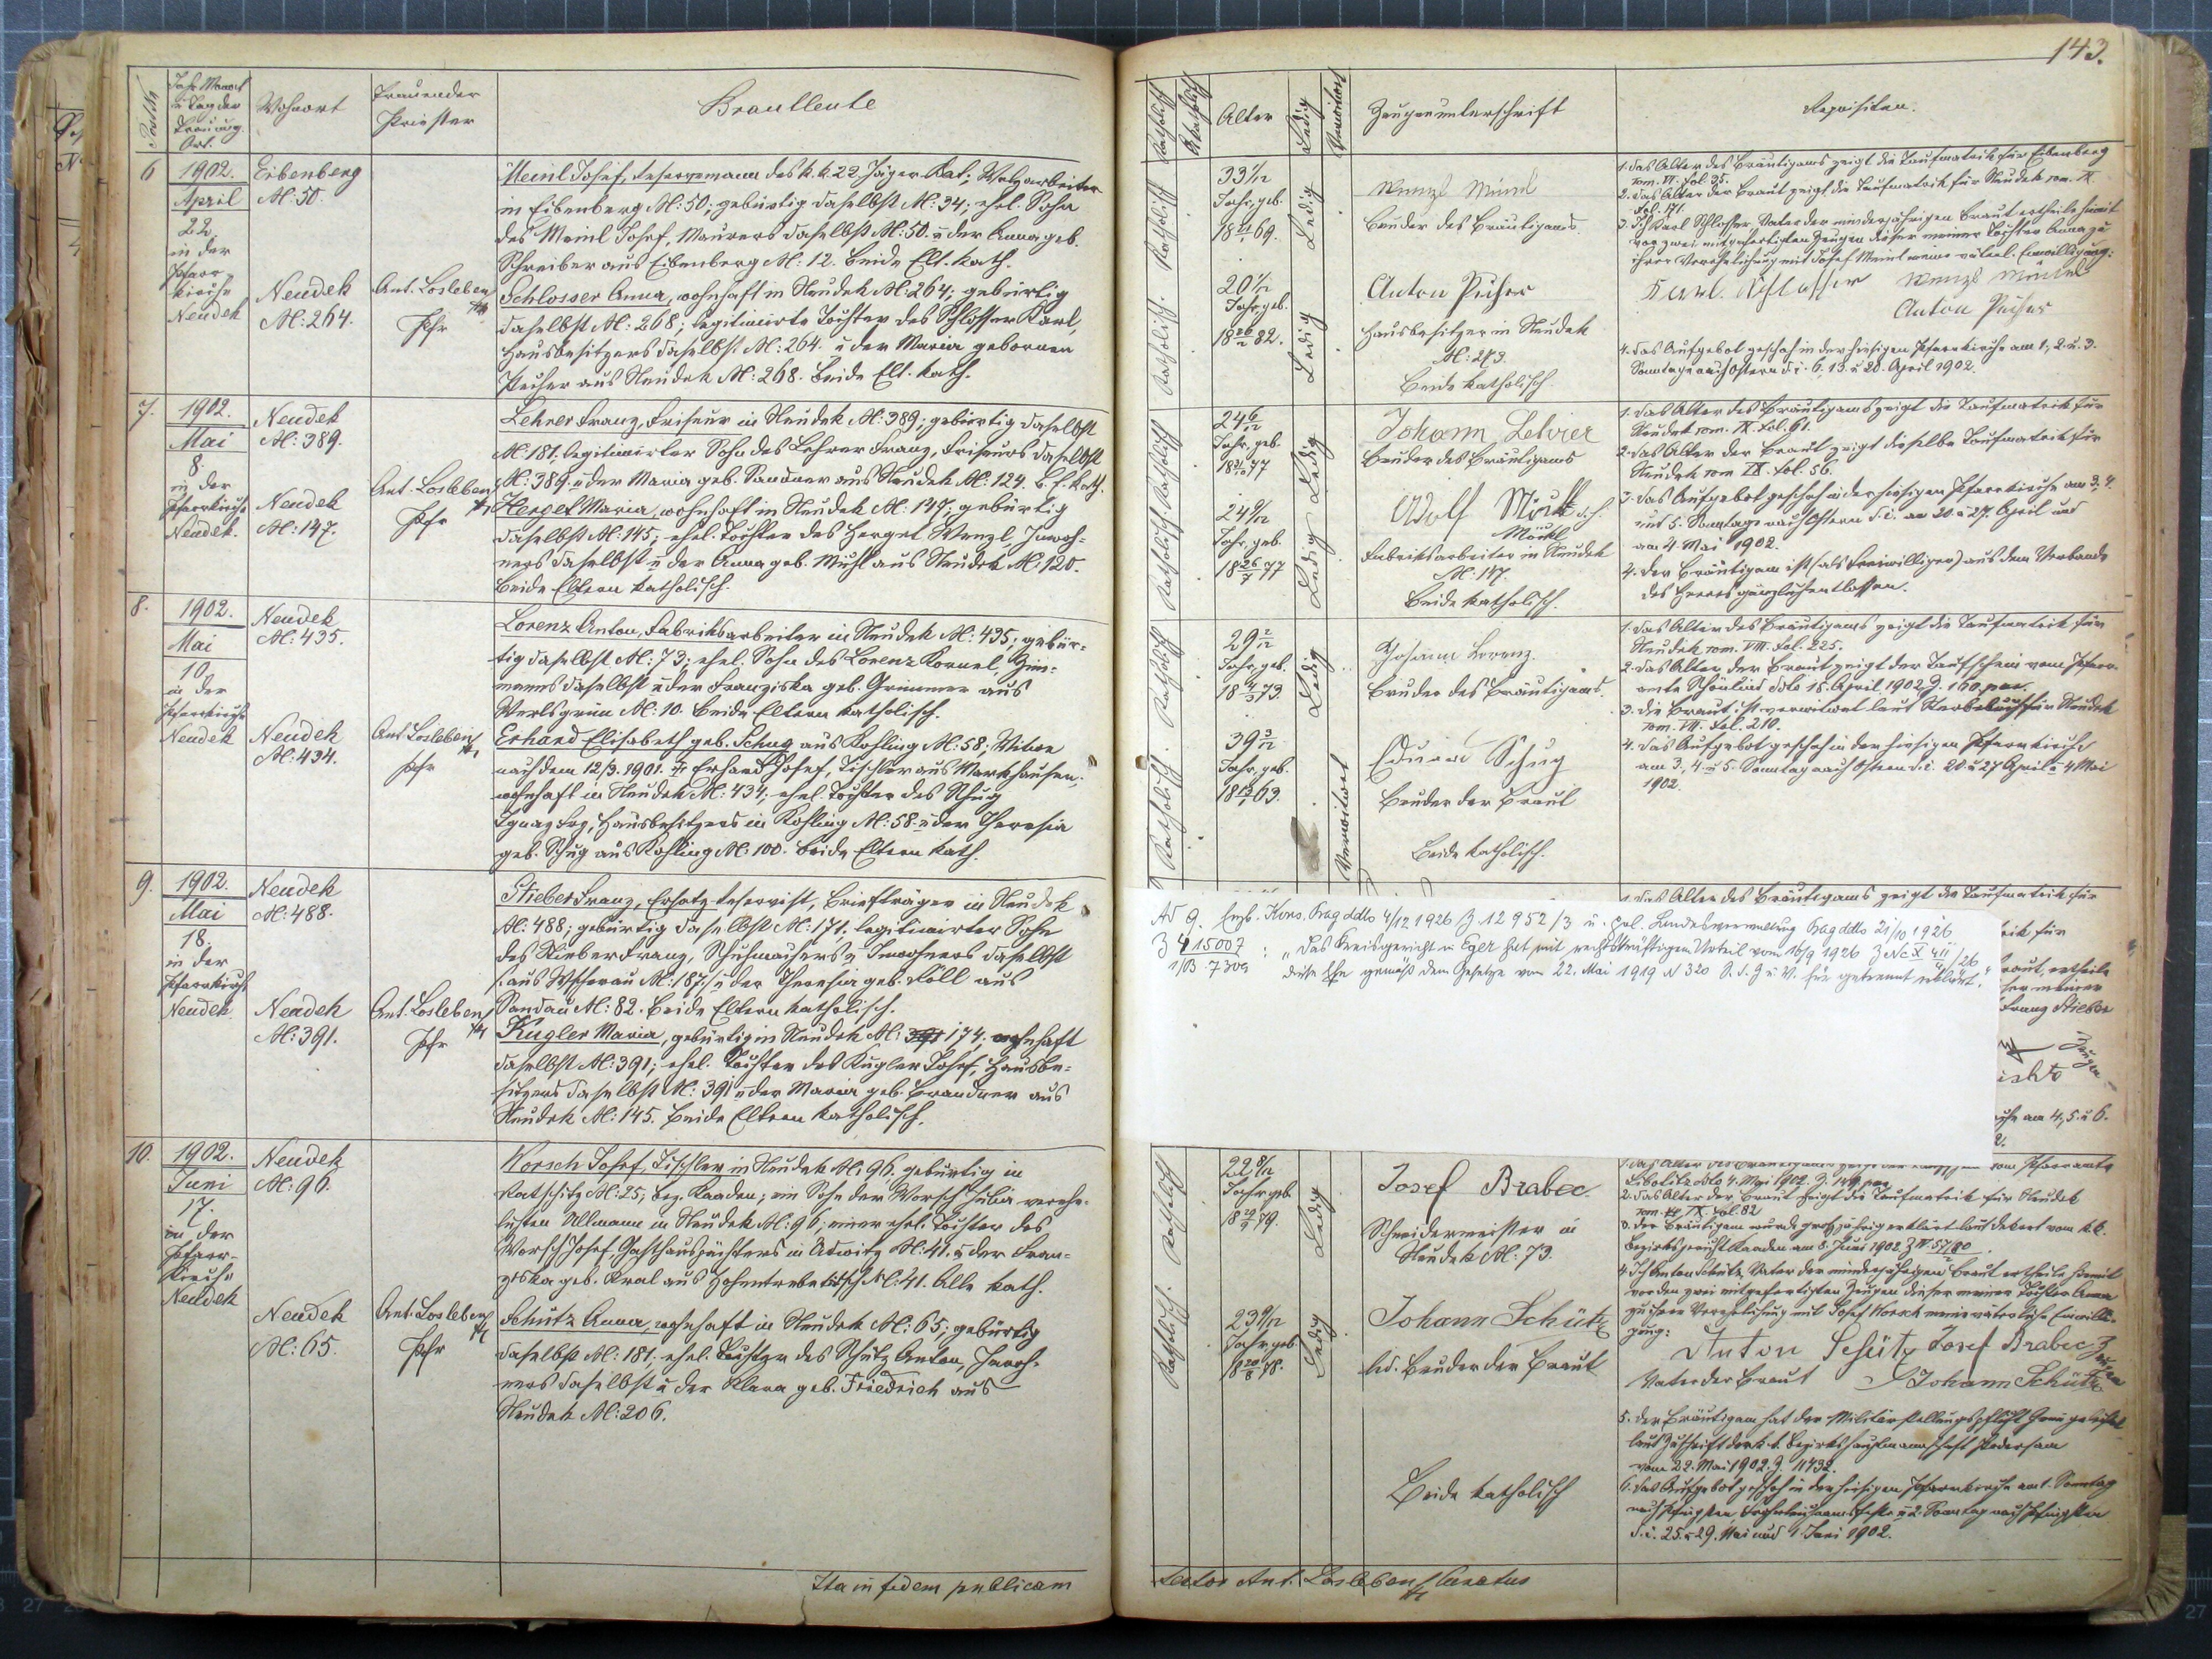 143.
Post No
Jahr, Monat
u. Tag der
Trauung.
Ort.
Wohnort
Trauender
Priester
Brautleute
6
1902.
April
22.
in der
Pfarr-
kirche
Neudek
Eibenberg
N: 50.
Neudek
N: 264.
Ant. Losleben
Pfr
Meinl Josef, Reservemann des k. k. 22 Jäger Bat., Walzarbeiter
in Eibenberg N: 50; gebürtig daselbst N: 34; ehel. Sohn
des Meinl Josef, Maurers daselbst N: 50. u der Anna geb.
Schreiber aus Eibenberg N: 12. Beide Elt. kath.
Schlosser Anna, wohnhaft in Neudek N: 264; gebürtig
daselbst N: 268; legitimirte Tochter des Schlosser Karl,
Hausbesitzers daselbst N: 264. u der Maria gebornen
Pecher aus Neudek N: 268. Beide Elt. kath.
7.
1902.
Mai
8.
in der
Pfarrkirche
Neudek.
Neudek
N: 389.
Neudek
N: 147.
Ant. Losleben
Pfr
Lehrer Franz, Friseur in Neudek N: 389; gebürtig daselbst
N: 181, legitimirter Sohn des Lehrer Franz, Friseurs daselbst
N: 389. u der Maria geb. Sandner aus Neudek N: 124. b. E. kath.
Herget Maria, wohnhaft in Neudek N: 147; gebürtig
daselbst N: 145; ehel. Tochter des Herget Wenzl, Inwoh-
ners daselbst u der Anna geb. aus Neudek N: 120.
Beide Eltern katholisch.
8.
1902.
Mai
10.
in der
Pfarrkirche
Neudek
Neudek
N: 435.
Neudek
N: 434.
Ant. Losleben
Pfr
Lorenz Anton, Fabriksarbeiter in Neudek N: 435; gebür-
tig daselbst N: 73; ehel. Sohn des Lorenz Kornel, Zim-
manns daselbst u der Franziska geb. Grimmer aus
N: 10. Beide Eltern katholisch.
Erhard Elisabeth geb. Schug aus Kohling N: 58; Witwe
nach dem 12/3. 1901. † Erhard Josef, Tischler aus Markhausen;
wohnhaft in Neudek N: 434; ehel. Tochter des Schug
Ignaz, Hausbesitzers in Kohling N: 58. u der Theresia
geb. Schug aus Kohling N: 100. Beide Eltern kath.
9.
1902.
Mai
18.
in der
Pfarrkirche
Neudek
Neudek
N: 488.
Neudek
N: 391.
Ant. Losleben
Pfr
Stieber Franz, Ersatz-Reservist, Briefträger in Neudek
N: 488; gebürtig daselbst N: 171; legitimirter Sohn
des Stieber Franz, Schuhmachers u Inwohners daselbst
/: aus Wscherau N: 187 :/ u der Theresia geb. Löll aus
Sandau N: 82. Beide Eltern katholisch.
Kugler Maria, gebürtig in Neudek N: 174; wohnhaft
daselbst N: 391; ehel. Tochter des Kugler Josef, Hausbe-
sitzers daselbst N: 391 u der Maria geb. Brandner aus
Neudek N: 145. Beide Eltern katholisch.
10.
1902.
Juni
17.
in der
Pfarr-
kirche
Neudek
Neudek
N: 96.
Neudek
N: 65.
Ant. Losleben
Pfr
Worsch Josef, Tischler in Neudek N: 96. gebürtig in
Ratschitz N: 25, Bez. Kaaden; ein Sohn der Worsch Julia verehe-
lichten Ullmann in Neudek N: 96; einer ehel. Tochter des
Worsch Josef, Gasthauspächters in N: 41. u der Fran-
ziska geb. Kral aus Hohentrebetitsch N: 41. Alle kath.
Schütz Anna, wohnhaft in Neudek N: 65; gebürtig
daselbst N: 181; ehel. Tochter des Schütz Anton, Inwoh-
ners daselbst u der Klara geb. Friedrich aus
Neudek N: 206.
Ita in fidem publicam
Katholisch
Alter
Ledig
Verwitwet
Zeugenunterschrift
Requisiten.
33 1/12
Jahr, geb.
69.
Katholisch
Ledig
Wenzl Meinl
Bruder des Bräutigams.
20 1/12
Jahr, geb.
82.
Katholisch.
Ledig
Anton Pecher
Hausbesitzer in Neudek
N: 273.
Beide katholisch
1. Das Alter des Bräutigams zeigt die Taufmatrik für Eibenberg
tom. VI. fol. 35.
2. Das Alter der Braut zeigt die Taufmatrik für Neudek tom. IX.
fol. 171.
3. Ich Karl Schlosser, Vater der minderjährigen Braut ertheile hiemit
vor zwei mitgefertigten Zeugen dieser meiner Tochter Anna zu
ihrer Verehelichung mit Josef Meinl meine väterl. Einwilligung:
Karl Schlosser Wenzl Meinl
Anton Pecher
4. Das Aufgebot geschah in der hiesigen Pfarrkirche am 1., 2. u. 3.
Sonntage nach Ostern d. i. 6. 13. u 20. April 1902.
24 6/12
Jahr, geb.
77
Katholisch
Ledig
Johann Lehrer
Bruder des Bräutigams
24 9/12
Jahr, geb.
18 26/7 77
Katholisch
Ledig
Adolf Möckl
Möckl
Fabriksarbeiter in Neudek
N: 147.
Beide katholisch.
1. Das Alter des Bräutigams zeigt die Taufmatrik für
Neudek tom. IX. fol. 61.
2. Das Alter der Braut zeigt dieselbe Taufmatrik für
Neudek tom IX. fol. 56.
3. Das Aufgebot geschah in der hiesigen Pfarrkirche am 3., 4.
und 5. Sonntage nach Ostern d. i. am 20. u 27. April und
am 4. Mai 1902.
4. Der Bräutigam ist (als Freiwilliger) aus dem Verbande
des Heeres gänzlich entlassen.
29 2/12
Jahr, geb.
73
Katholisch
Ledig
Johann Lorenz.
Bruder des Bräutigams.
39 3/12
Jahr, geb.
63.
Katholisch
Verwitwet
Eduard Schug
Bruder der Braut
Beide katholisch.
1. Das Alter des Bräutigams zeigt die Taufmatrik für
Neudek tom. VIII. fol. 225.
2. Das Alter der Braut zeigt der Taufschein vom Pfarr-
amte Schönlind ddto 18. April 1902 Z. 160.
3. Die Braut ist verwitwet laut Sterbebuch für Neudek
tom. VII. fol. 210.
4. Das Aufgebot geschah in der hiesigen Pfarrkirche
am 3., 4. u 5. Sonntag nach Ostern d. i. 20. u 27 April u 4 Mai
1902.
1. Das Alter des Bräutigams zeigt die Taufmatrik für
Ad 9. Erzb. Kons. Prag ddto 4/12 1926 Z 12952/3 u. Pol. Landesverwaltung Prag ddto 21/10 1926
Z 4 15007
1/B. 7309 : „Das Kreisgericht in Eger hat mit rechtskräftigem Urteil vom 16/9 1926
diese Ehe gemäß dem Gesetze vom 22. Mai 1919 N 320 S. d. G u. V. für getrennt erklärt."
Franz Stieber
Zeugen
am 4., 5. u 6.
22 8/12
Jahr geb.
79.
Katholisch
Ledig
Josef Brabec.
Schneidermeister in
Neudek N: 73.
23 9/12
Jahr geb.
18 20/8 78.
Katholisch.
Ledig
Johann Schütz
led. Bruder der Braut
Beide katholisch
Libotitz ddto 4. Mai 1902. Z. 149
2. Das Alter der Braut zeigt die Taufmatrik für Neudek
tom. IX. fol. 82
3. Der Bräutigam wurde großjährig erklärt laut Dekret vom k. k.
Bezirksgericht Kaaden am 8. Juni 1902
4. Ich Anton Schütz, Vater der minderjährigen Braut ertheile hiemit
vor den zwei mitgefertigten Zeugen dieser meiner Tochter Anna
zu ihrer Verehelichung mit Josef Worsch meine väterliche Einwilli-
gung:
Anton Schütz Josef Brabec
Vater der Braut Johann Schütz
Zeugen
5. Der Bräutigam hat der Militärstellungspflicht Genüge geleistet
laut Zuschrift der k. k. Bezirkshauptmannschaft Podersam
vom 22. Mai 1902. Z. 11432.
6. Das Aufgebot geschah in der hiesigen Pfarrkirche am 1. Sonntag
nach Pfingsten, Frohnleichnamsfeste u 2. Sonntag nach Pfingsten
d. i. 25. u 29. Mai und 1 Juni 1902.
Ant. Losleben